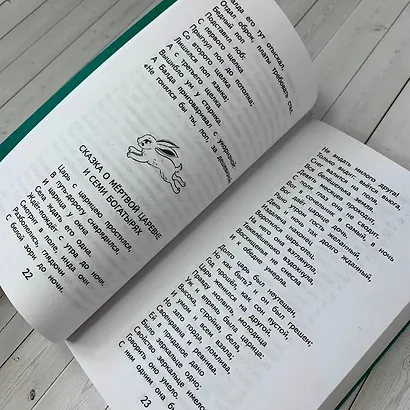 Балда его тут отыскал,
Отдал оброк, платы требовать стал.
Бедный поп
Подставил лоб:
С первого щелка
Прыгнул поп до потолка;
Со второго щелка
Лишился поп языка;
А с третьего щелка
Вышибло ум у старика.
А Балда приговаривал с укоризной:
«Не гонялся бы ты, поп, за
СКАЗКА О МЁРТВОЙ ЦАРЕВНЕ
И СЕМИ БОГАТЫРЯХ
Царь с царицею простился,
В путь-дорогу снарядился,
И царица у окна
Села ждать его одна.
Ждёт-пождёт с утра до ночи,
Смотрит в поле, инда очи
Разболелись глядючи
С белой зори до ночи.
22
Не видать милого друга!
Только видит: вьётся вьюга,
Снег валится на поля,
Вся белёшенька земля.
Девять месяцев проходит,
С поля глаз она не сводит.
Вот в сочельник в самый, в ночь
Бог даёт царице дочь.
Рано утром гость желанный,
День и ночь так долго жданный,
Воротился царь-отец.
На него она взглянула,
Тяжелёшенько вздохнула,
Восхищенья не снесла
Долго царь был неутешен,
Но как быть? и он был грешен;
Год прошёл, как сон пустой,
Царь женился на другой.
Правду молвить, молодица
Уж и впрямь была царица:
И умом и всем взяла;
Но зато горда, ломлива,
Своенравна и ревнива.
Ей в приданое дано
Было зеркальце одно;
Свойство зеркальце имело:
Говорить оно умело.
С ним одним она
23